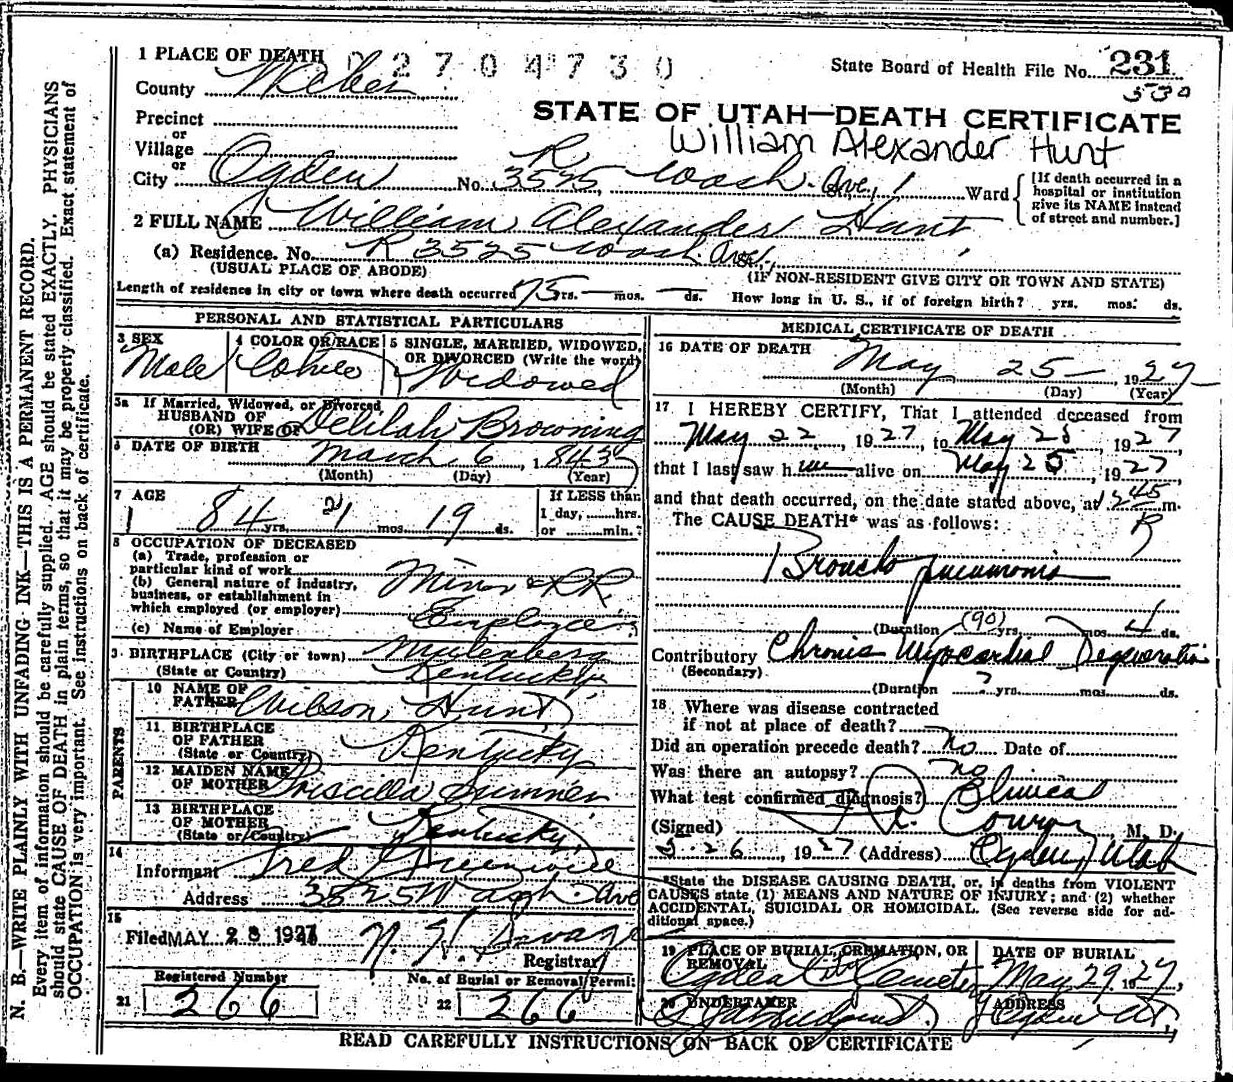 1 PLACE OF DEATH 0 2 7 0 4 7 3 0
State Board of Health File No. 231
530
County Weber
STATE OF UTAH—DEATH CERTIFICATE
Precinct
or
William Alexander Hunt
Village
or
R
City Ogden No. 3525 Wash. Ave., Ward
[If death occurred in a hospital or institution give its NAME instead of street and number.]
2 FULL NAME William Alexander Hunt
(a) Residence. No. R 3525 Wash. Ave.
(USUAL PLACE OF ABODE) (IF NON-RESIDENT GIVE CITY OR TOWN AND STATE)
Length of residence in city or town where death occurred 75 yrs. — mos. — ds. How long in U. S., if of foreign birth? yrs. mos. ds.
PERSONAL AND STATISTICAL PARTICULARS
3 SEX 4 COLOR OR RACE 5 SINGLE, MARRIED, WIDOWED,
OR DIVORCED (Write the word)
Male White Widowed
5a If Married, Widowed, or Divorced
HUSBAND OF
(OR) WIFE OF Delilah Browning
6 DATE OF BIRTH March 6, 1843
(Month) (Day) (Year)
7 AGE
If LESS than
1 day, hrs.
or min.?
84 yrs. 2 mos. 19 ds.
8 OCCUPATION OF DECEASED
(a) Trade, profession or
particular kind of work
(b) General nature of industry,
business, or establishment in
which employed (or employer)
Miner & RR.
Employee
(c) Name of Employer
9 BIRTHPLACE (City or town) Mulenberg
(State or Country) Kentucky
PARENTS
10 NAME OF
FATHER Wilson Hunt
11 BIRTHPLACE
OF FATHER
(State or Country) Kentucky
12 MAIDEN NAME
OF MOTHER Priscilla Sumner
13 BIRTHPLACE
OF MOTHER
(State or Country) Kentucky
14
Informant Fred
Address 3525 Wash. Ave
15
Filed MAY 28 1927 N. H. Savage
Registrar
Registered Number No. of Burial or Removal Permit
21 266 22 266
MEDICAL CERTIFICATE OF DEATH
16 DATE OF DEATH
May 25 1927
(Month) (Day) (Year)
17 I HEREBY CERTIFY, That I attended deceased from
May 22, 1927, to May 25, 1927
that I last saw him alive on May 25, 1927,
and that death occurred, on the date stated above, at 1245 m.
The CAUSE DEATH* was as follows: P
Broncho pneumonia
(Duration (90) yrs. mos. 4 ds.
Contributory Chronic Myocardial Degeneration
(Secondary)
(Duration ? yrs. mos. ds.
18 Where was disease contracted
if not at place of death?
Did an operation precede death? no Date of
Was there an autopsy? no
What test confirmed diagnosis? Clinical
(Signed) M. D.
5-26, 1927 (Address) Ogden, Utah
*State the DISEASE CAUSING DEATH, or, in deaths from VIOLENT
CAUSES state (1) MEANS AND NATURE OF INJURY; and (2) whether
ACCIDENTAL, SUICIDAL OR HOMICIDAL. (See reverse side for ad-
ditional space.)
19 PLACE OF BURIAL, CREMATION, OR
REMOVAL
DATE OF BURIAL
Ogden City Cemetery May 29, 1927,
20 UNDERTAKER ADDRESS
Ogden Ut,
READ CAREFULLY INSTRUCTIONS ON BACK OF CERTIFICATE
N. B.—WRITE PLAINLY WITH UNFADING INK—THIS IS A PERMANENT RECORD.
Every item of information should be carefully supplied. AGE should be stated EXACTLY. PHYSICIANS
should state CAUSE OF DEATH in plain terms, so that it may be properly classified. Exact statement of
OCCUPATION is very important. See instructions on back of certificate.